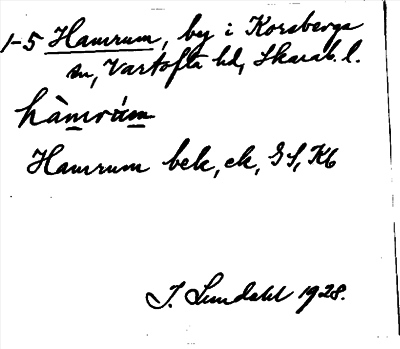 1-5 Hamrum, by i Korsberga
sn, Vartofta hd, Skarab. l.
hàmrúm
Hamrum bek, ek, GS, Kb
I. Lundahl 1928.